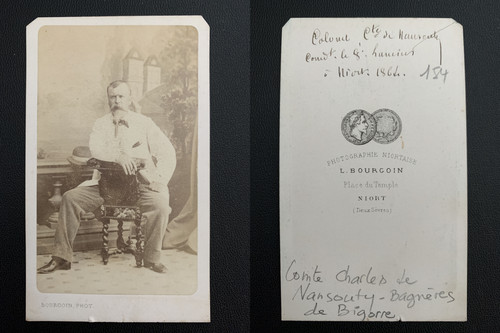 BOURGOIN PHOT.
Colonel Cte de Nansouty
Comdt le 8e hussards
à Niort. 1864. 184
PHOTOGRAPHIE NIORTAISE
L. BOURGOIN
Place du Temple
NIORT
(Deux-Sèvres)
Comte Charles de
Nansouty - Bagnères
de Bigorre